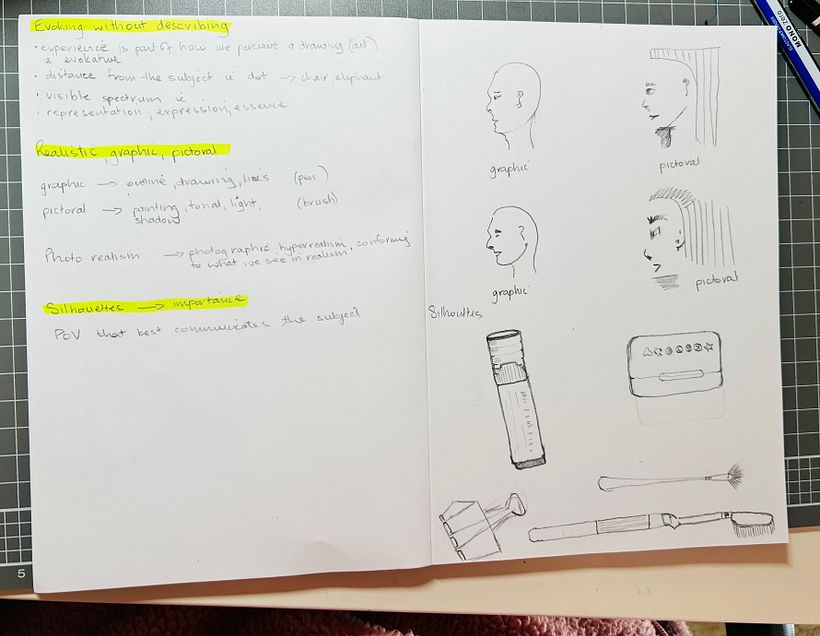 Evoking without describing
• experience is part of how we perceive a drawing (art)
distance from the subject
• visible spectrum
• representation, expression, essence
Realistic, graphic, pictoral
graphic → outline, drawing, lines (pen)
pictoral → painting, tonal, light, (brush)
shadow
Photo realism → photographic hyperrealism, conforming
to what we see in realism.
Silhouettes → importance
POV that best communicates the subject
graphic
pictoral
graphic
pictoral
Silhouttes
MONO zero
5